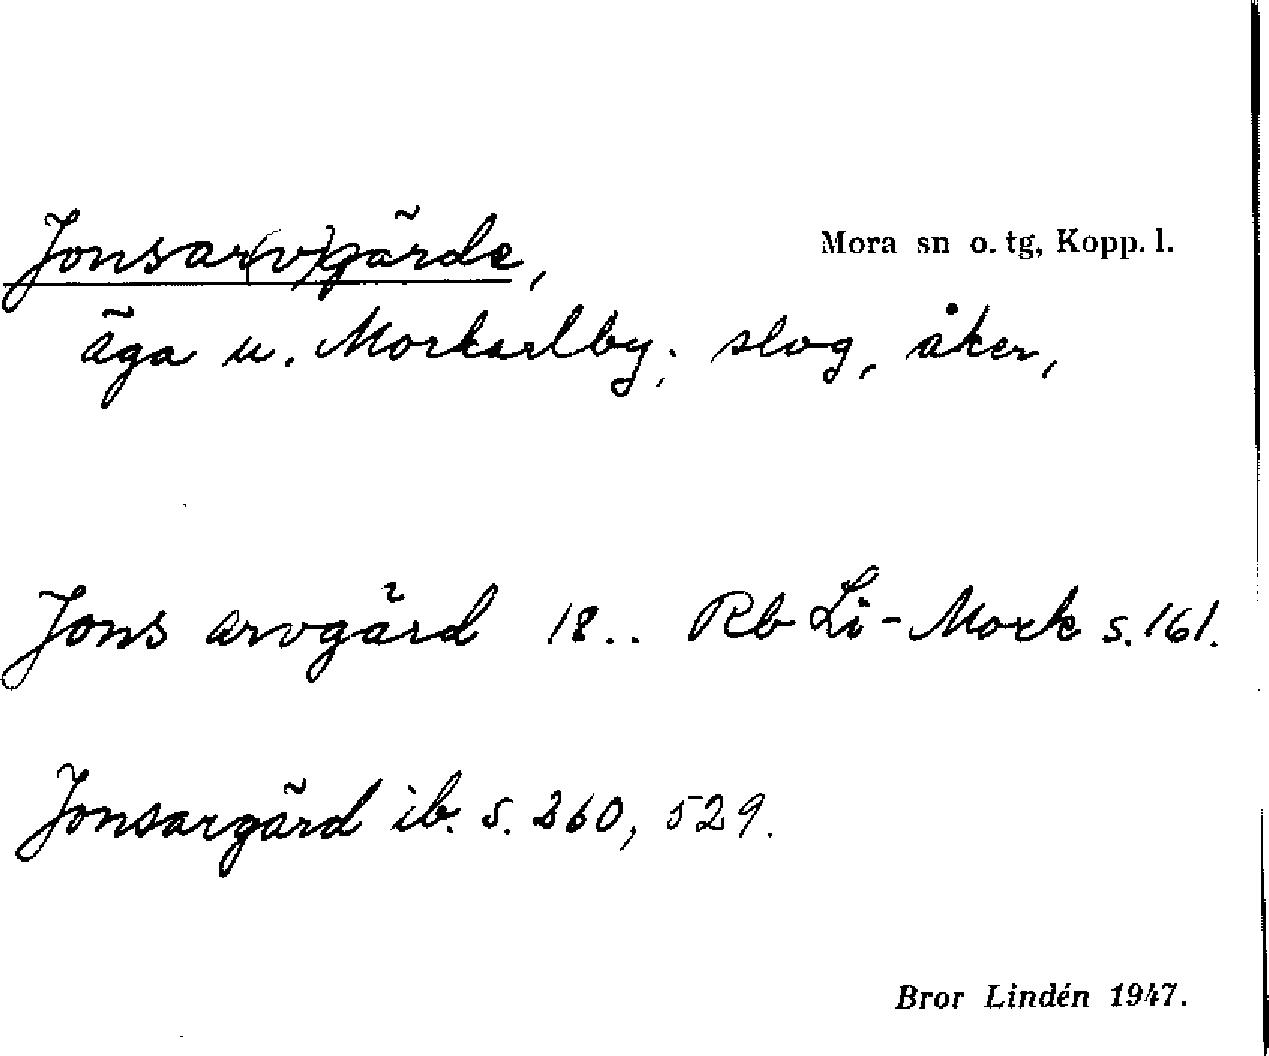 Jonsar(v)gärde,
Mora sn o. tg, Kopp. l.
äga u. Morkarlby; slog, åker,
Jons arvgärd 18.. Rb Li-Mork s. 161.
Jonsargärd ib. s. 260, 529.
Bror Lindén 1947.